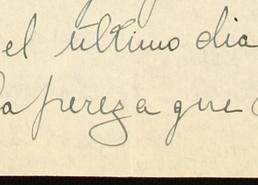 el ultimo dia
la pereza que